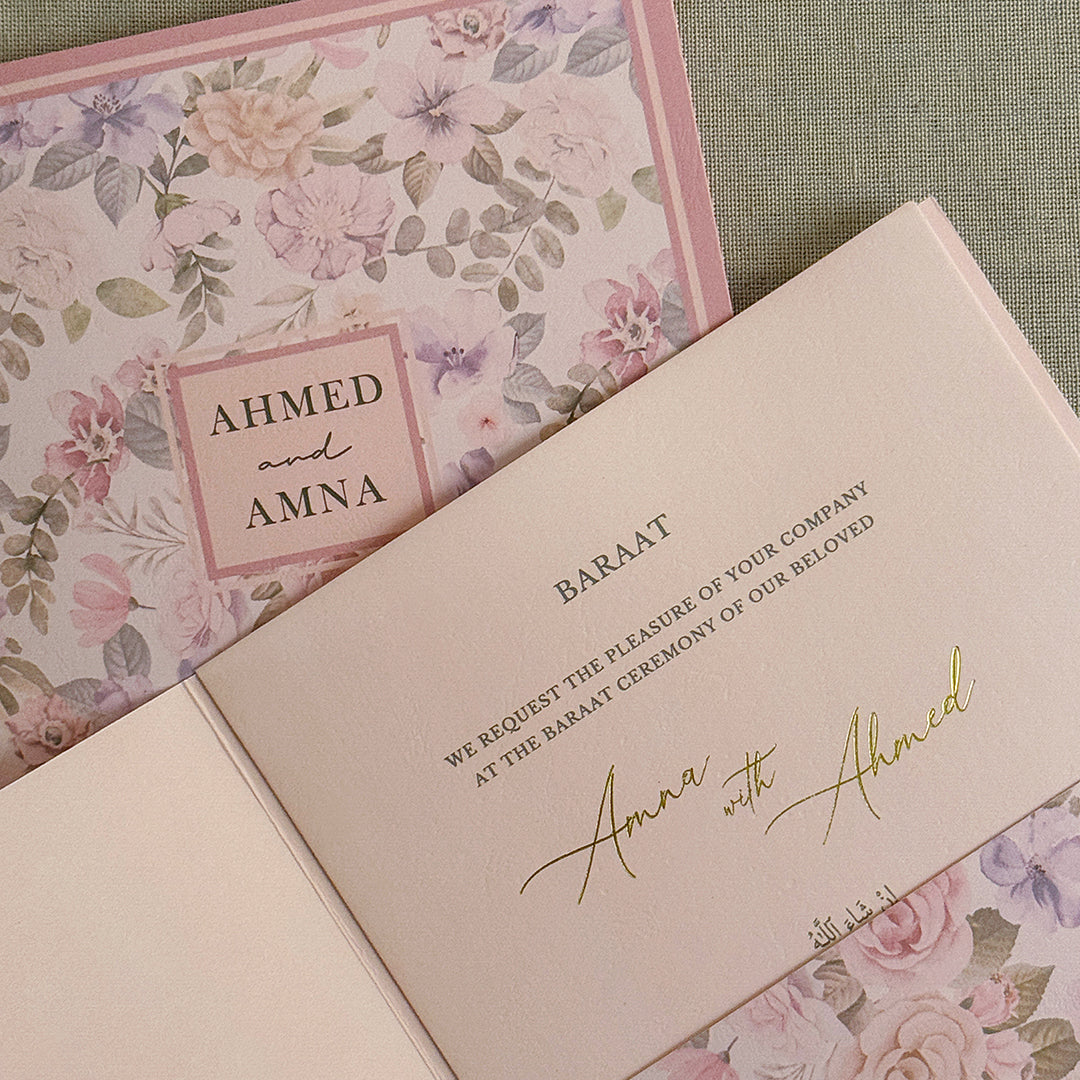 AHMED
and
AMNA
BARAAT
WE REQUEST THE PLEASURE OF YOUR COMPANY
AT THE BARAAT CEREMONY OF OUR BELOVED
Amna with Ahmed
إِنْ شَاءَ ٱللَّٰهُ